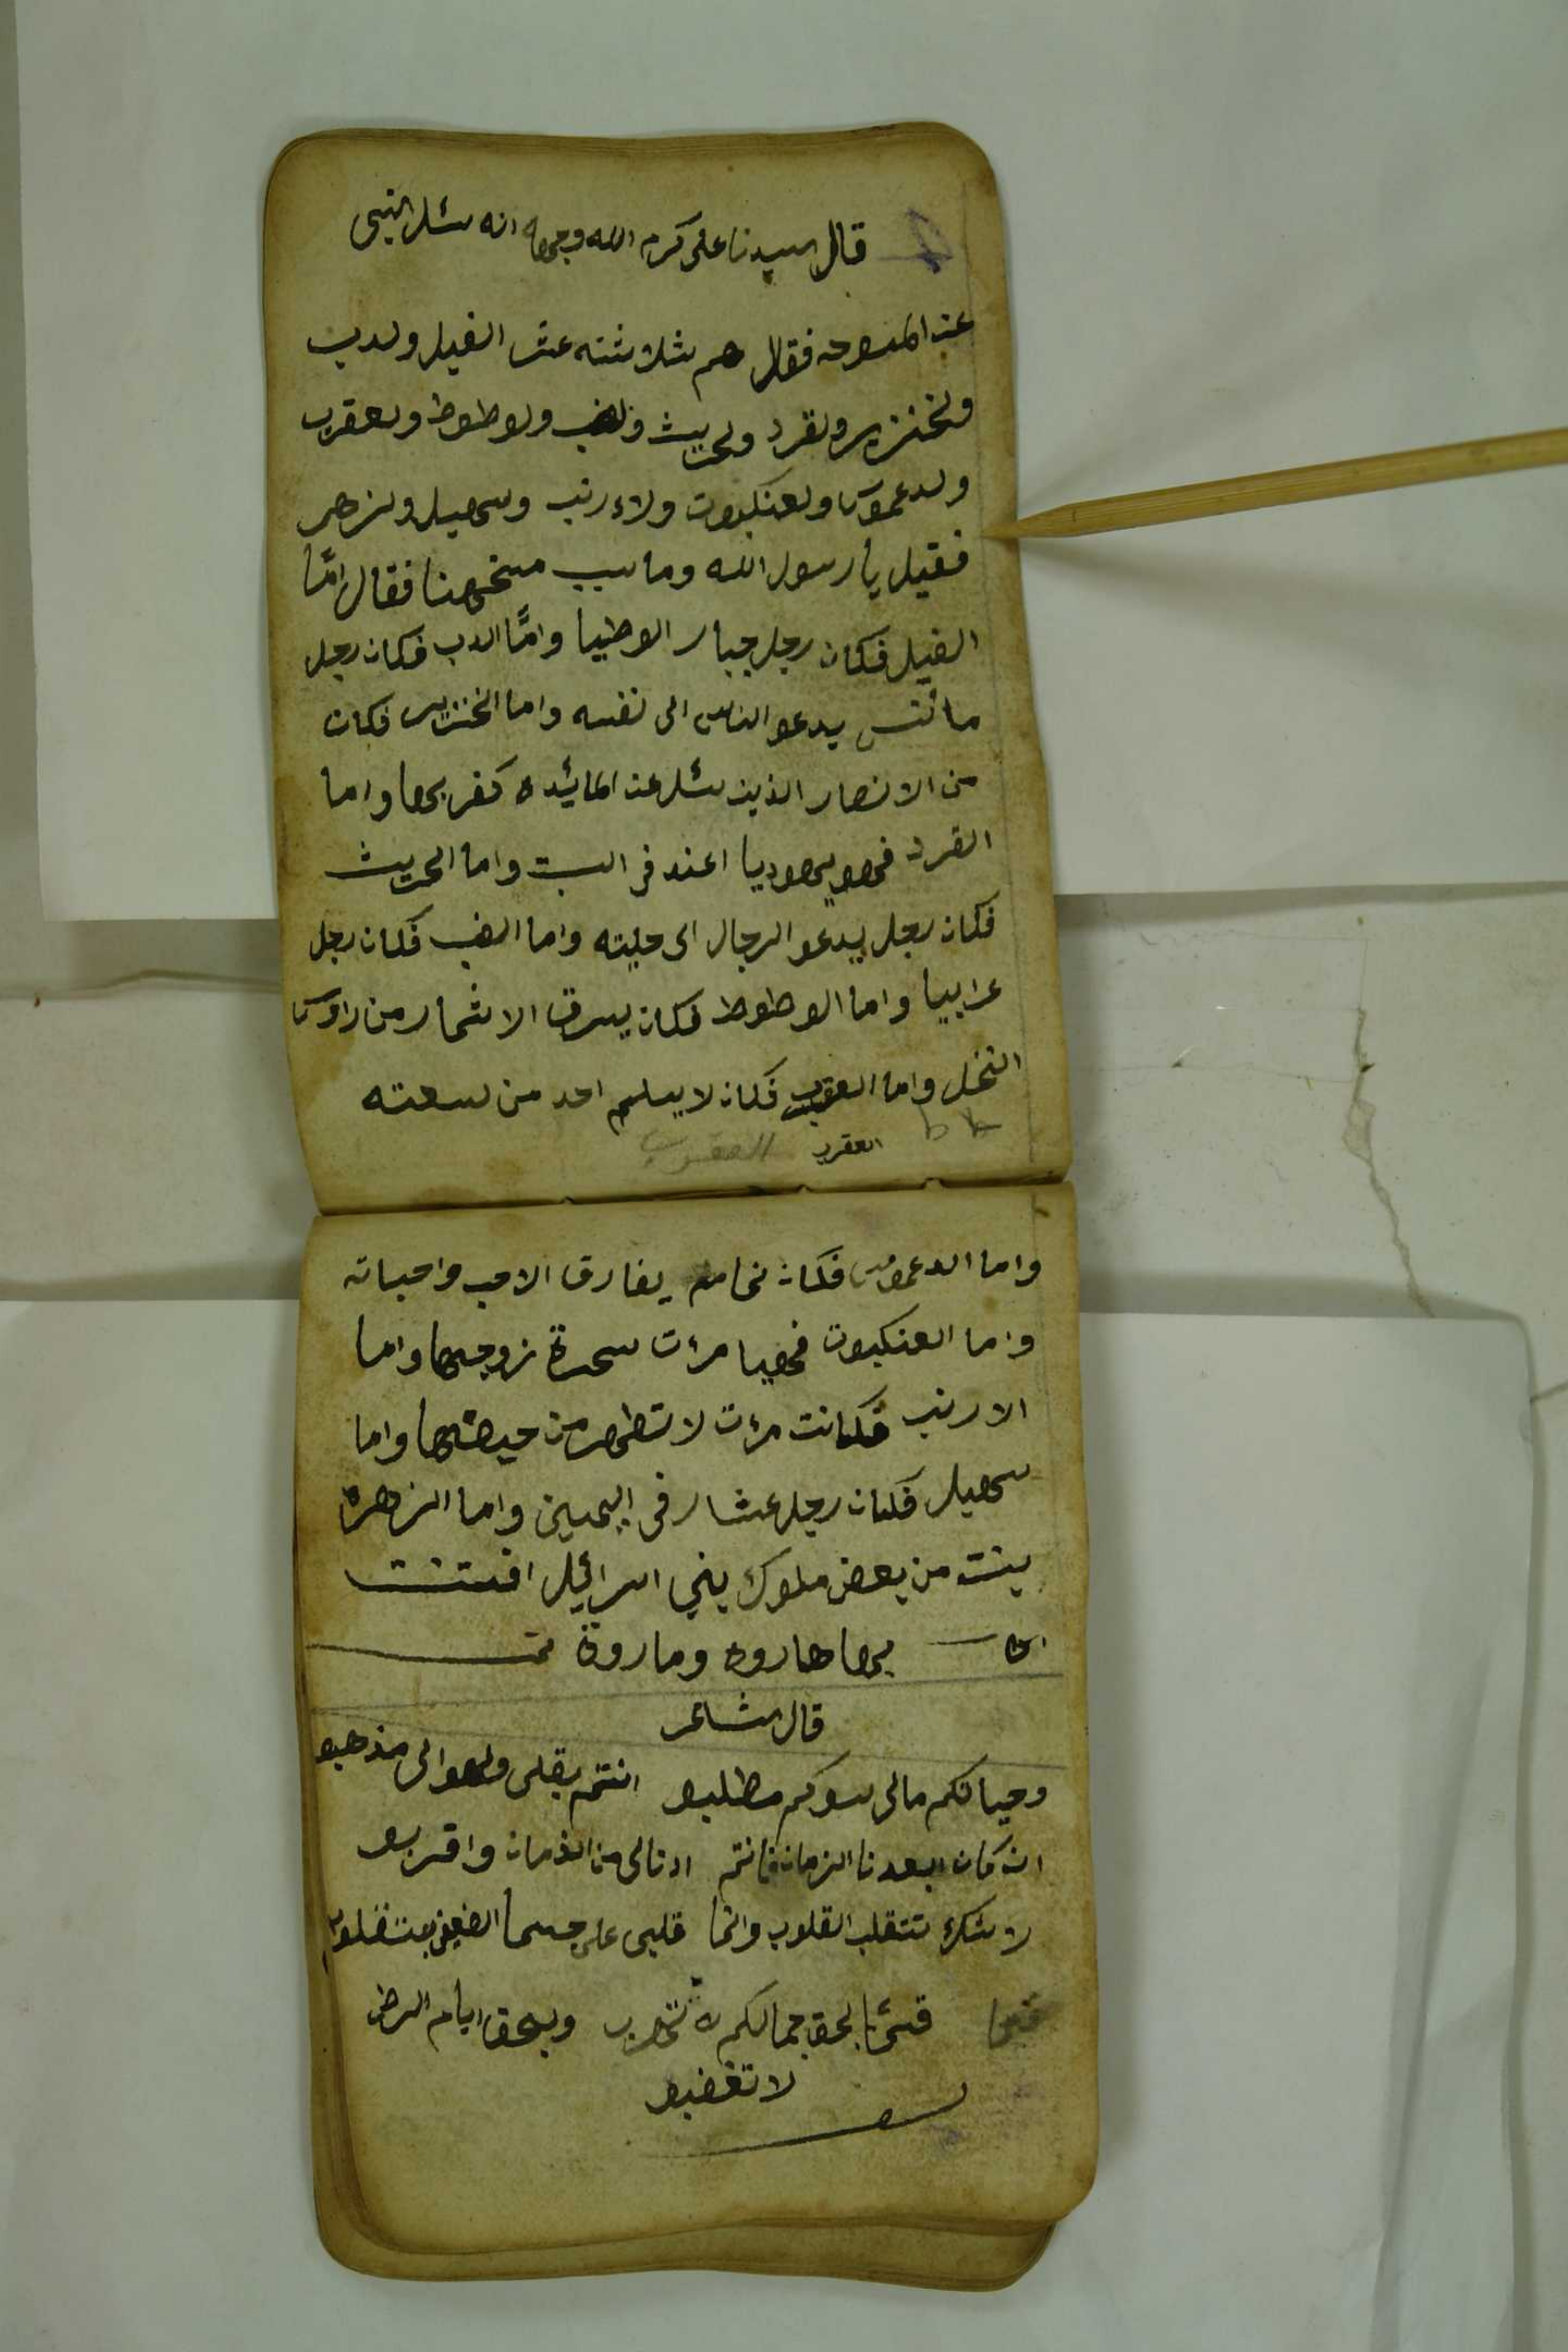 قال سيدنا على كرم الله وجهه انه سئل النبى
عن المسوخه فقال هم ثلاثته عشر الفيل ولدب
ولخنزير ولقرد ولجريث ولضب ولوطوط ولعقرب
ولدعموس ولعنكبوت ولاءرنب وسهيل ولزهر
فقيل يا رسول الله وما سبب مسخهنا فقال امّا
الفيل فكان رجل جبار الوطيا وامّا الدب فكان رجل
مأنث يدعو الناس الى نفسه واما الخنزير فكان
من الانصار الذين سئل عن المائيده كفر بها واما
القرد فهو يهوديا اعتد فى السبت واما الجريث
فكان رجل يدعو الرجال الى حليته واما الضب فكان رجل
عرابيا واما الوطوط فكان يسرق الاثمار من راوس
النخل واما العقرب فكان لا يسلم احد من لسعته
العقرب العقرب
واما الدعموس فكان نمام يفارق الاحب واحباته
واما العنكبوت فهيا مرءت سحرة زوجها واما
الارنب فكانت مرءت لا تطهر من حيضها واما
سهيل فكان رجل عشار فى اليمين واما الزهرة
بنت من بعض ملوك بني اسرائيل افتتنت
بها هاروه وماروة تمت
قال شاعر
وحياتكم مالى سوكم مطلبو انتم بقلى ولهوالى مذهبو
ان كان ابعدنا الزمان فانتم ادنالى من الذمان واقربو
لا شك تتقلب القلوب وانما قلبى على
قسمًا بحق جمالكم لا تهرب وبحق ايام الرضى
لا تغضبو